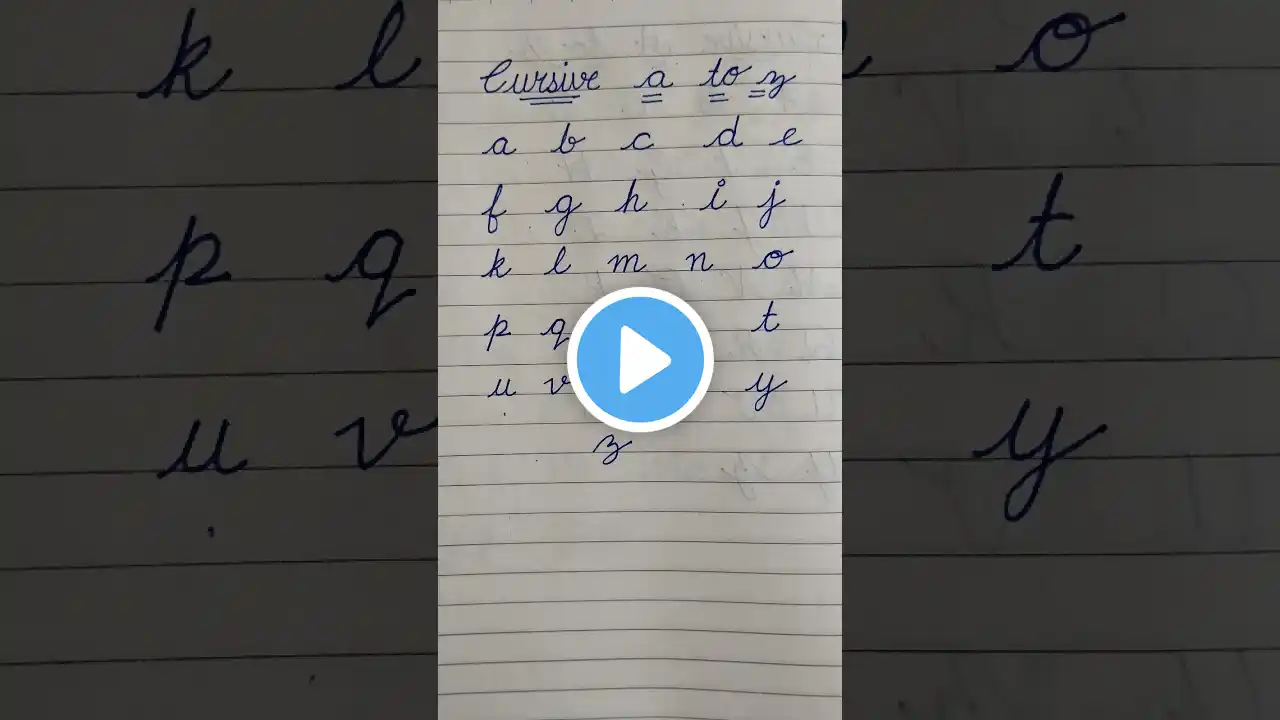 Cursive a to z
a b c d e
f g h i j
k l m n o
p q t
u v y
z